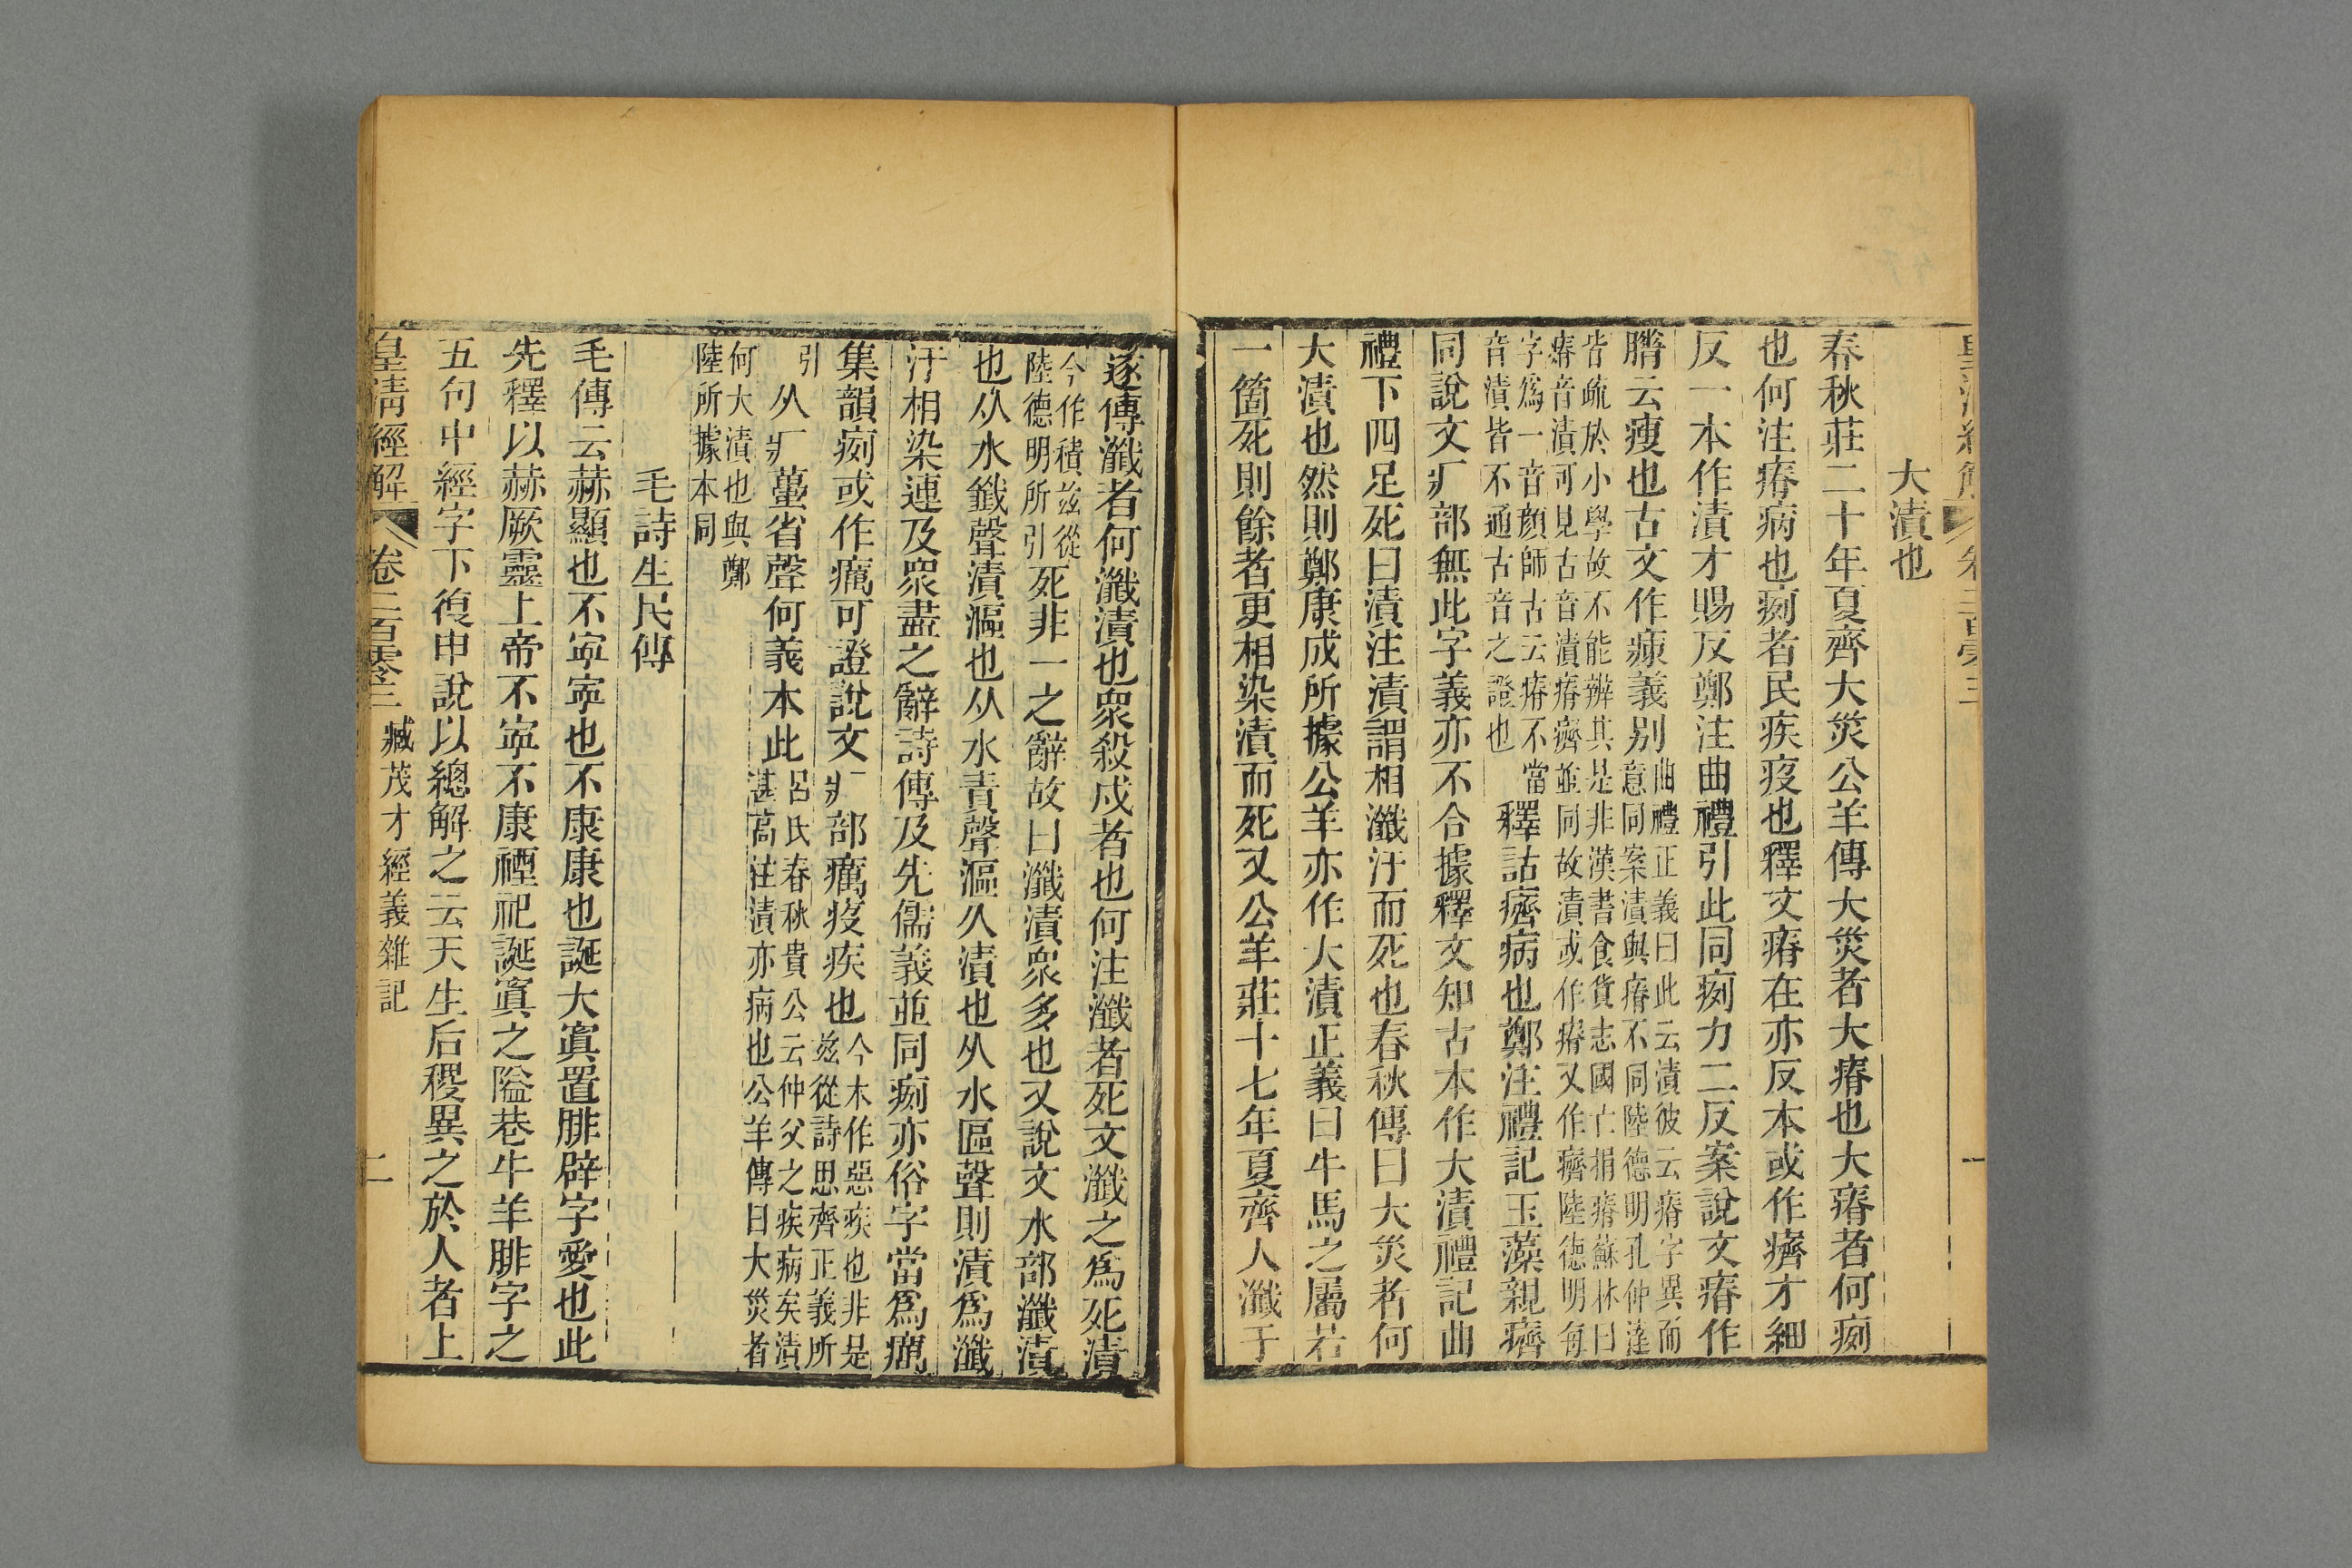 大瀆也
春秋莊二十年夏齊大災公羊傳大災者大瘠也大瘠者何㾐
也何注瘠病也㾐者民疾疫也釋文瘠在亦反本或作㾹才細
反一本作瀆才賜反鄭注曲禮引此同㾐力二反案說文瘠作
膌云瘦也古文作㾊義別曲禮正義曰此云瀆彼云瘠字異而
意同案瀆與瘠不同陸德明孔仲達
皆疏於小學故不能辨其是非漢書食貨志國亡捐瘠蘇林曰
瘠音瀆可見古音瀆瘠㾹並同故瀆或作瘠又作㾹陸德明每
字爲一音顏師古云瘠不當
音瀆皆不通古音之證也
釋詁㾹病也鄭注禮記玉藻親㾹
同說文疒部無此字義亦不合據釋文知古本作大瀆禮記曲
禮下四足死曰瀆注瀆謂相瀸汙而死也春秋傳曰大災者何
大瀆也然則鄭康成所據公羊亦作大瀆正義曰牛馬之屬若
一箇死則餘者更相染瀆而死又公羊莊十七年夏齊人瀸于
遂傳瀸者何瀸瀆也眾殺戍者也何注瀸者死文瀸之爲死瀆
今作積茲從
陸德明所引
死非一之辭故曰瀸瀆眾多也又說文水部瀸瀆
也从水韱聲瀆漚也从水責聲漚久瀆也从水區聲則瀆爲瀸
汙相染連及眾盡之辭詩傳及先儒義並同㾐亦俗字當爲癘
集韻㾐或作癘可證說文疒部癘疫疾也今本作惡疾也非是
茲從詩思齊正義所
引
从疒蠆省聲何義本此呂氏春秋貴公云仲父之疾病矣瀆
甚高注瀆亦病也公羊傳曰大災者
何大瀆也與鄭
陸所據本同
毛詩生民傳
毛傳云赫顯也不寧寧也不康康也誕大寘置腓辟字愛也此
先釋以赫厥靈上帝不寧不康禋祀誕寘之隘巷牛羊腓字之
五句中經字下復申說以總解之云天生后稷異之於人者上
皇清經解
卷二百零三
臧茂才經義雜記
二